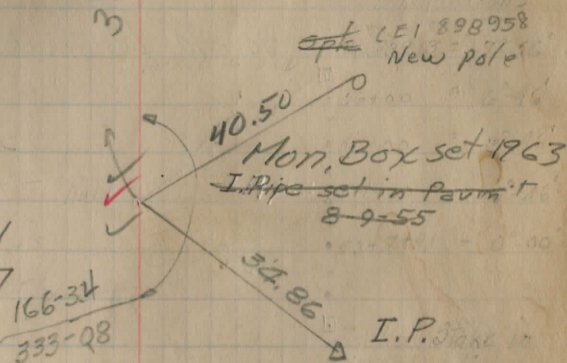 3
CEI 898958
New pole
40.50
Mon. Box set 1963
I. Pipe set in Pavm't
8-9-55
34.86
166-34
333-08
I.P.